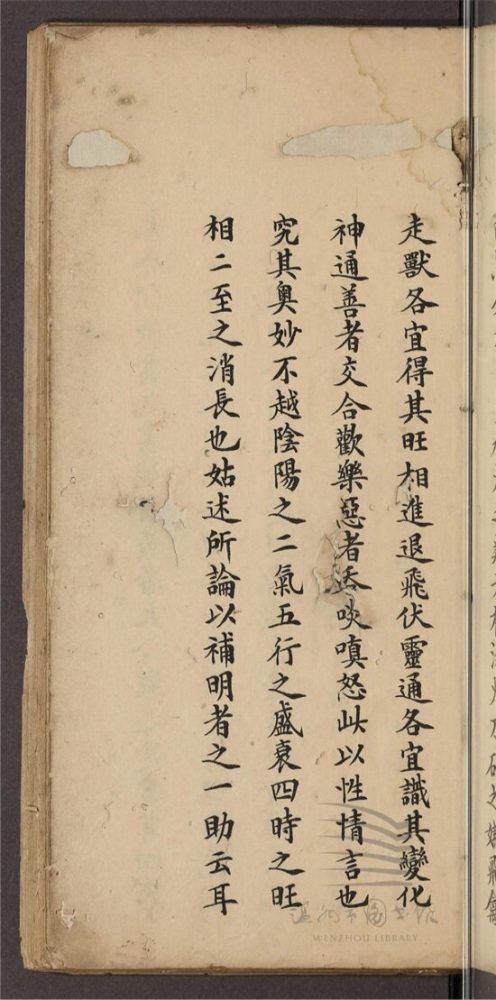 走獸各宜得其旺相進退飛伏靈通各宜識其變化
神通善者交合歡樂惡者吞啖嗔怒此以性情言也
究其奧妙不越陰陽之二氣五行之盛衰四時之旺
相二至之消長也姑述所論以補明者之一助云耳
温州市图书馆
WENZHOU LIBRARY